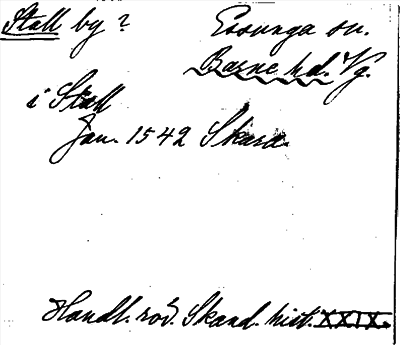 Stall by? Essunga sn.
Barne hd. Vg.
i Stall
Jan. 1542 Skara.
Handl. rör. Skand. hist. XXIX.